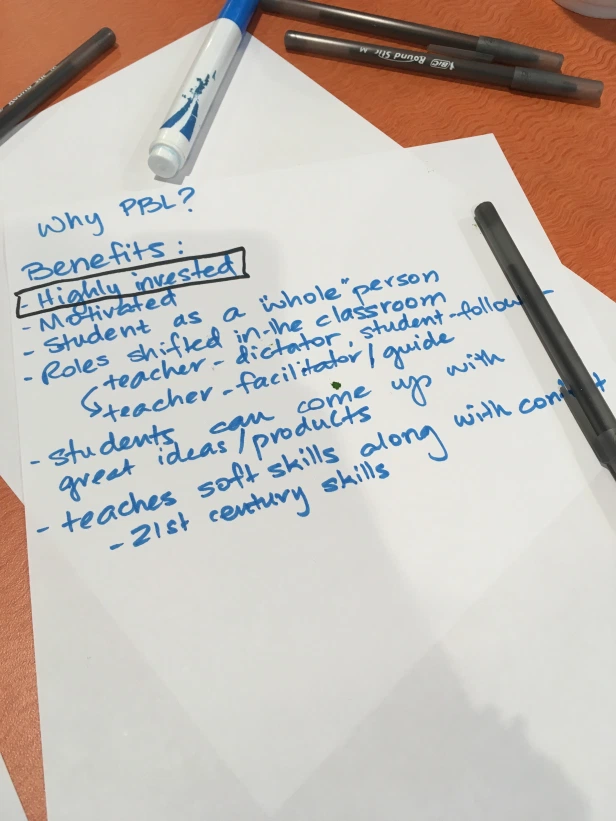 BIC Round Stic M
Why PBL?
Benefits:
- Highly invested
- Motivated
- Student as a "whole" person
- Roles shifted in the classroom
teacher - dictator, student-follow
teacher - facilitator/guide
- students can come up with
great ideas/products
- teaches soft skills along with
- 21st century skills